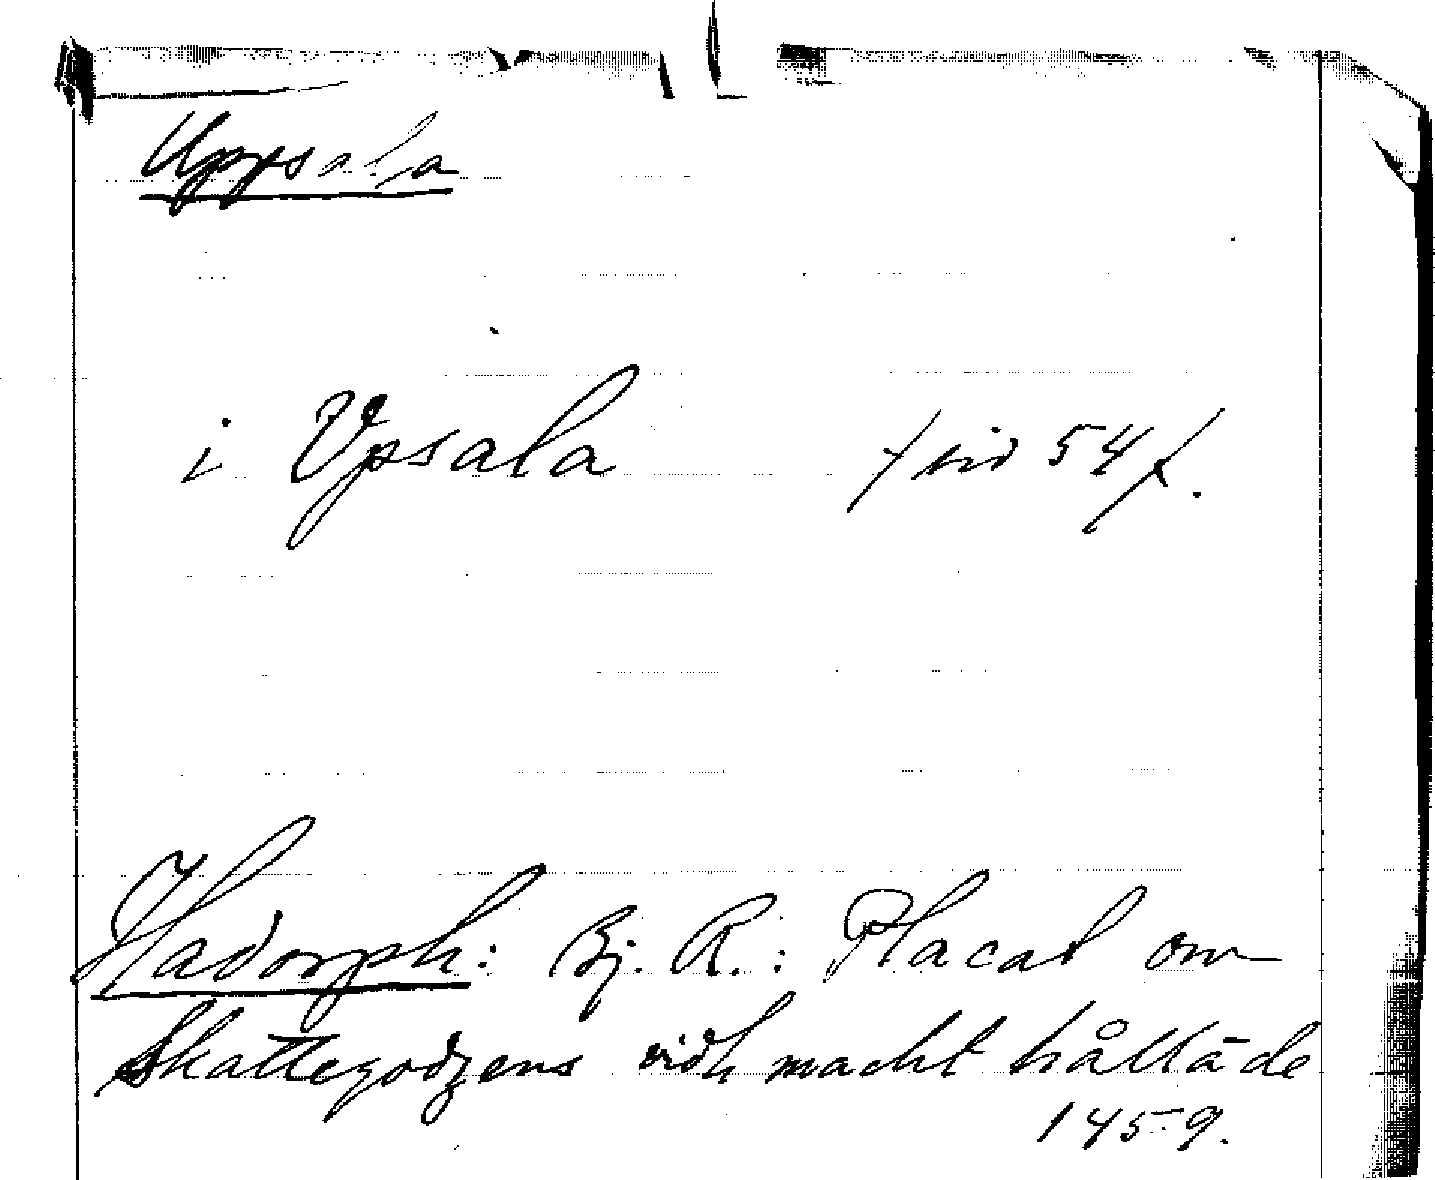 Uppsala
i Vpsala /sid 54/.
Hadorph: Bj. R.: Placat om
Skattegodzens vidh macht hållāde
1459.